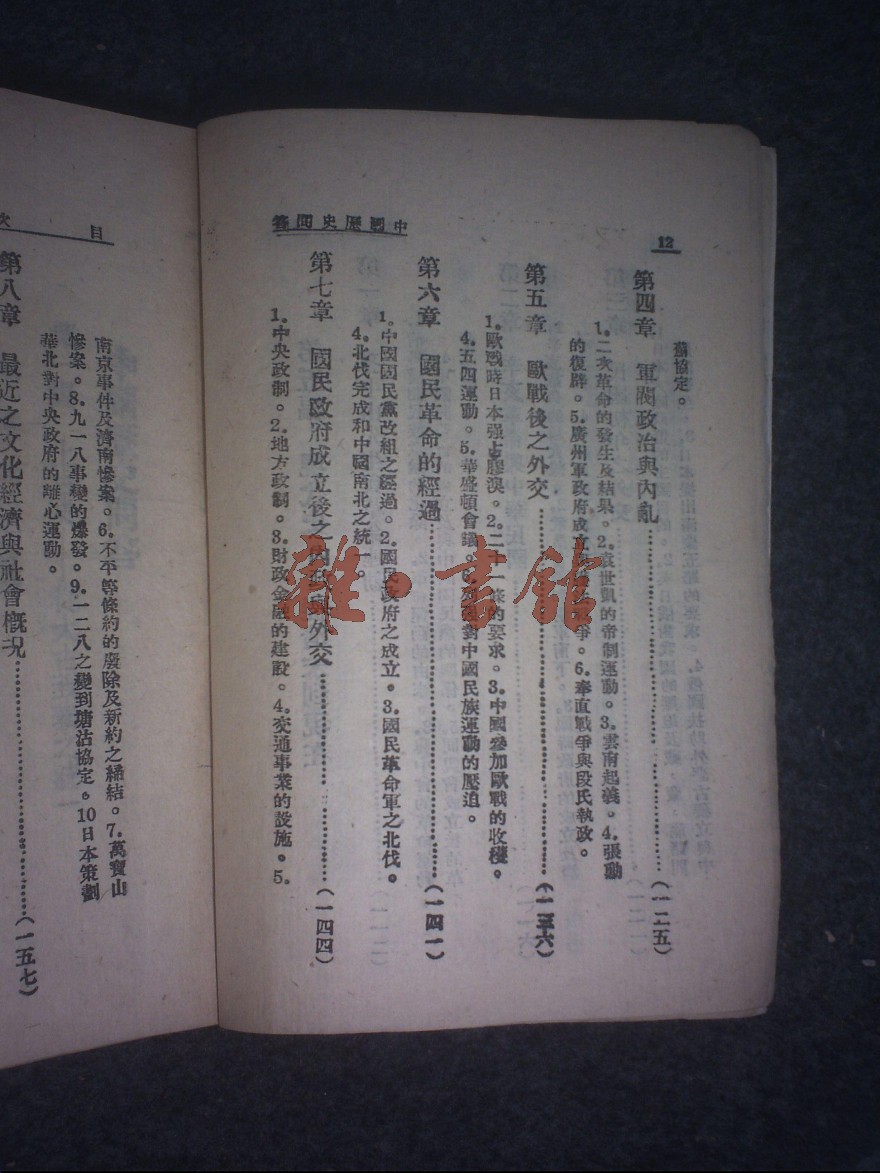 中國歷史問答
12
蒙協定。
第四章 軍閥政治與內亂……………………(一二五)
1.二次革命的發生及結果。2.袁世凱的帝制運動。3.雲南起義。4.張勳
的復辟。5.廣州軍政府成立與護法戰爭。6.奉直戰爭與段氏執政。
第五章 歐戰後之外交……………………(一三六)
1.歐戰時日本强占膠澳。2.二十一條的要求。3.中國參加歐戰的收穫。
4.五四運動。5.華盛頓會議。6.列强對中國民族運動的壓迫。
第六章 國民革命的經過……………………(一四一)
1.中國國民黨改組之經過。2.國民政府之成立。3.國民革命軍之北伐。
4.北伐完成和中國南北之統一。
第七章 國民政府成立後之內政與外交……………………(一四四)
1.中央政制。2.地方政制。3.財政金融的建設。4.交通事業的設施。5.
目 次
南京事件及濟南慘案。6.不平等條約的廢除及新約之締結。7.萬寶山
慘案。8.九一八事變的爆發。9.一二八之變到塘沽協定。10日本策劃
華北對中央政府的離心運動。
第八章 最近之文化經濟與社會概况……………………(一五七)
雜·書館